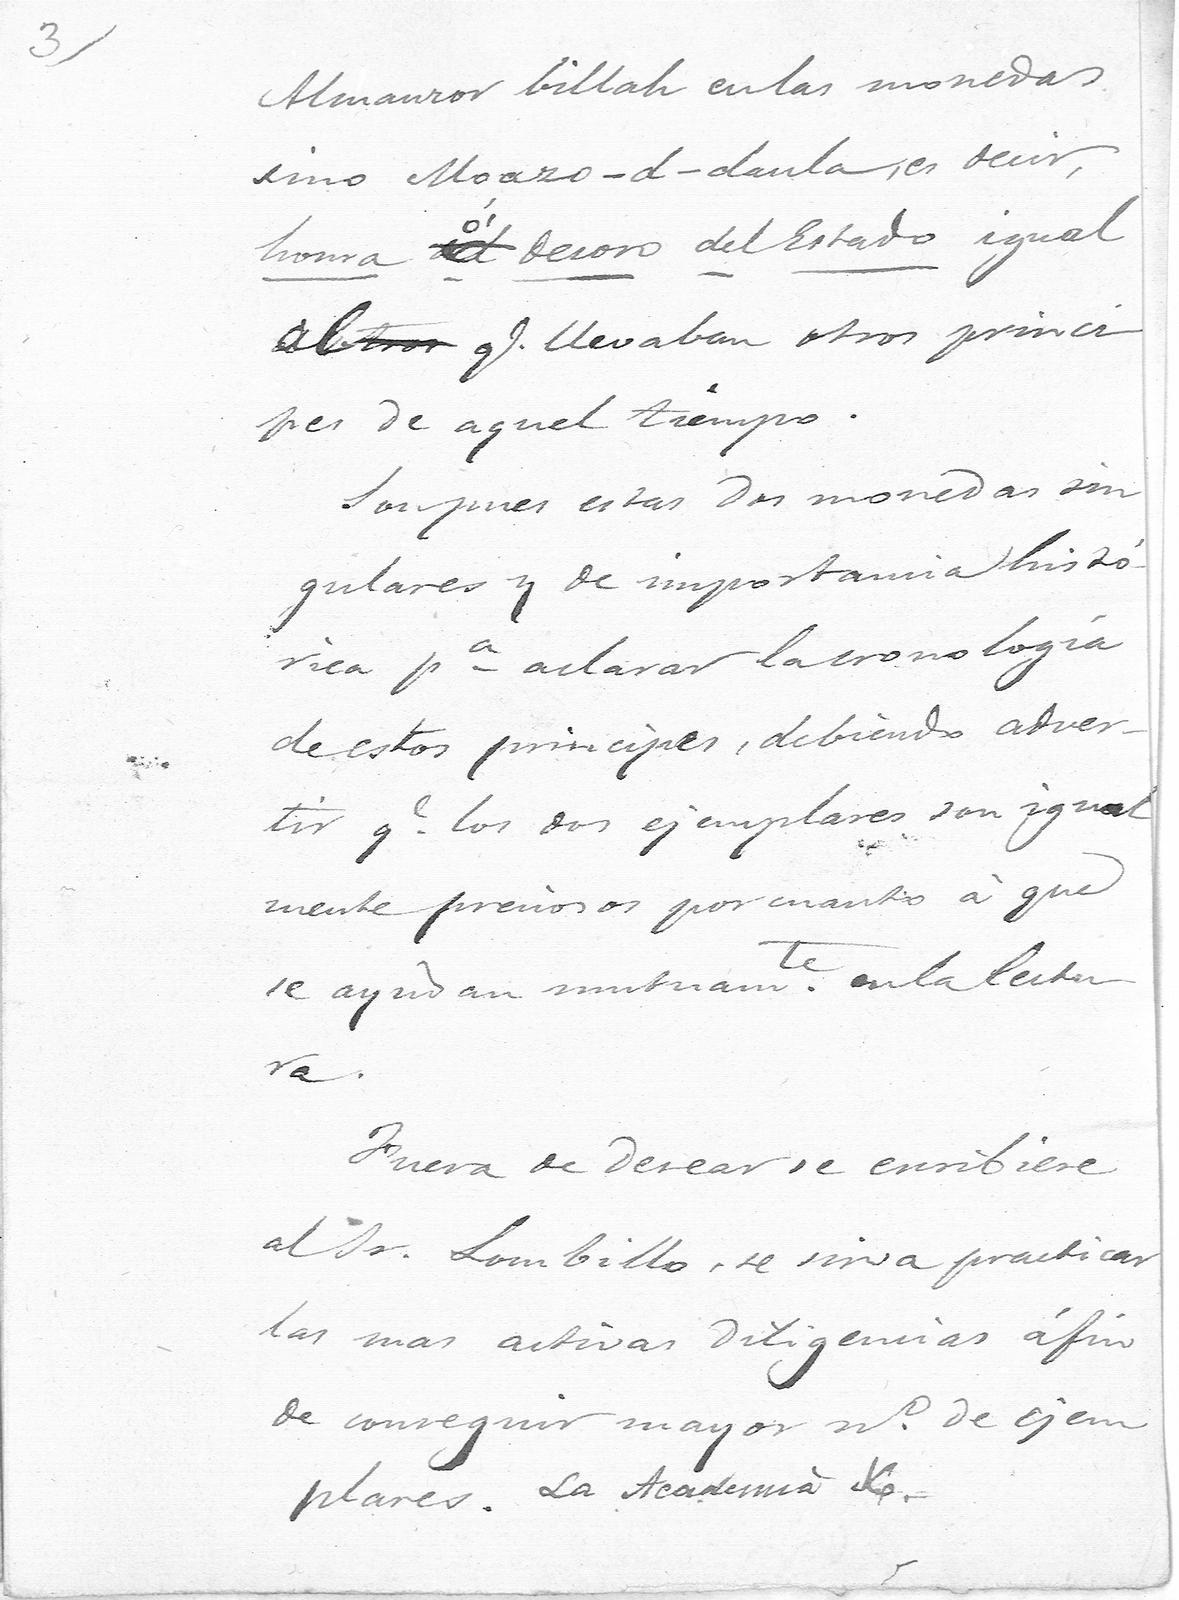 3/
Almanzor billah en las monedas
sino Moazo-d-daula, es decir,
honra ó decoro del Estado igual
al q.e llevaban otros princi
pes de aquel tiempo.
Son pues estas dos monedas sin
gulares y de importancia histó-
rica p.a aclarar la cronología
de estos principes, debiendo adver-
tir q.e los dos ejemplares son igual
mente preciosos por cuanto à que
se ayudan mutuam.te en la lectu
ra.
Fuera de desear se escribiese
al Sr. Lombillo, se sirva practicar
las mas activas diligencias á fin
de conseguir mayor n.o de ejem
plares. La Academia &.